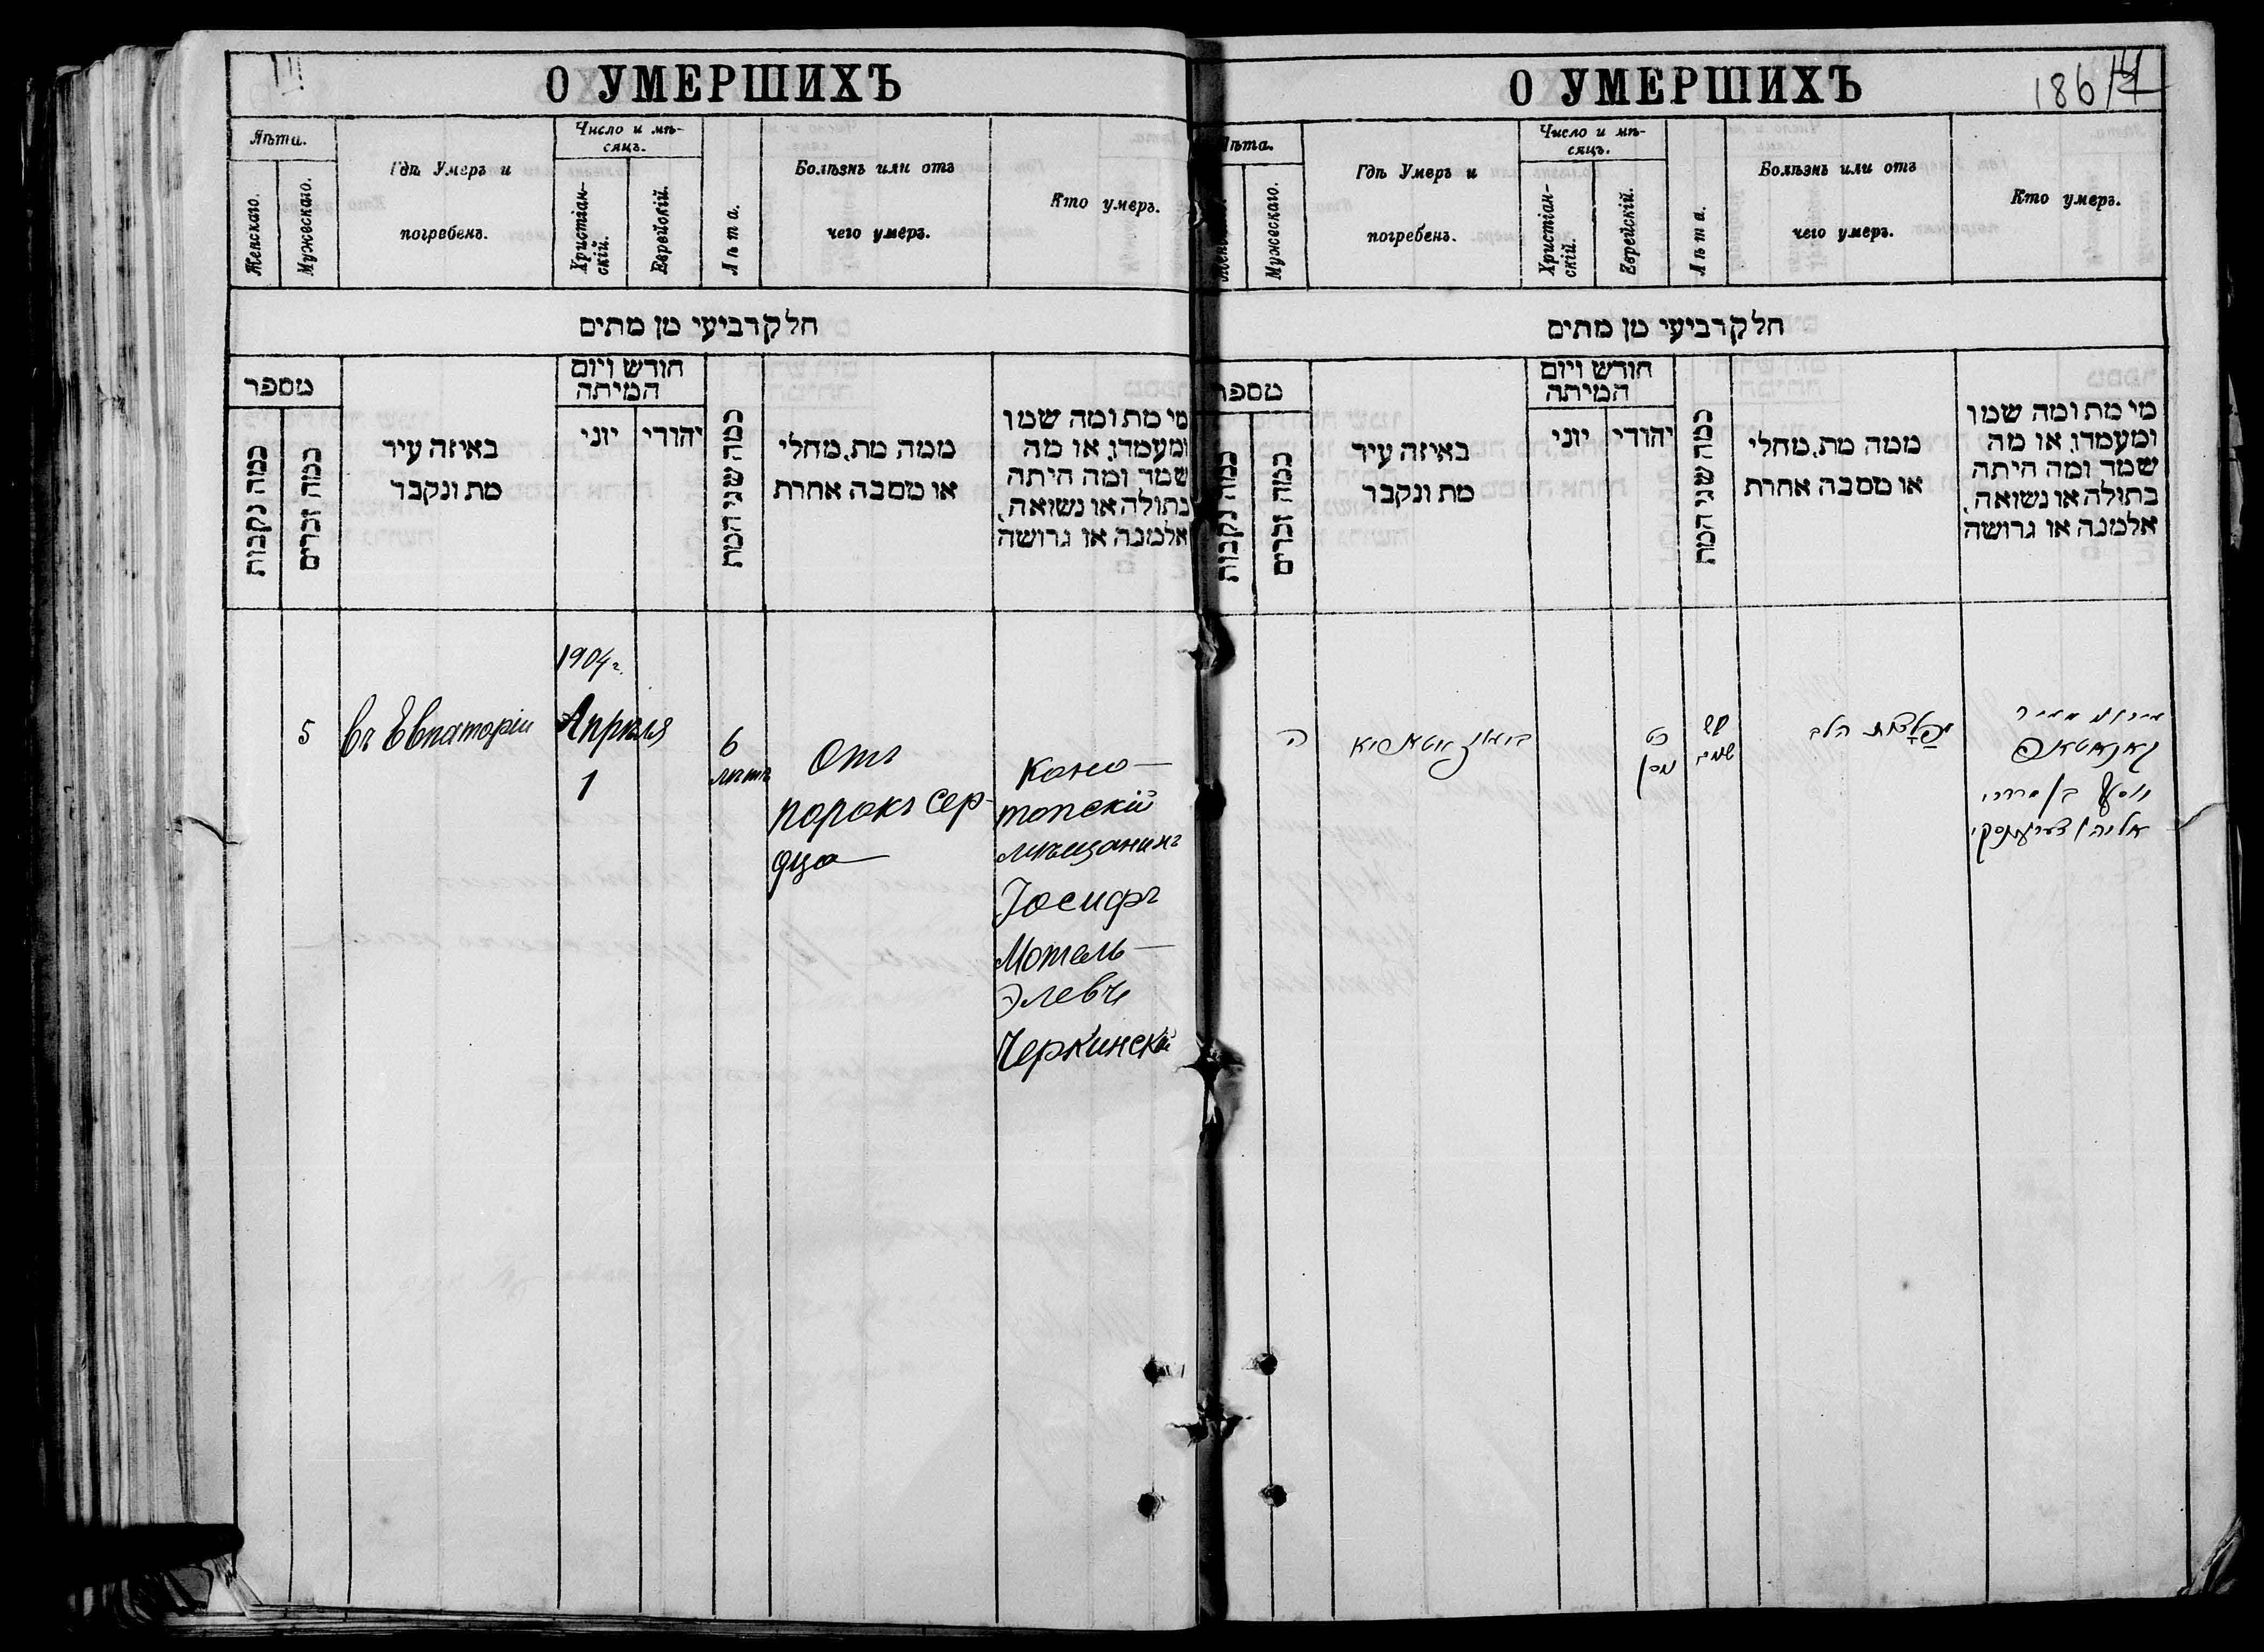 III
О УМЕРШИХЪ
Лѣта.
Женскаго.
Мужескаго.
Гдѣ Умеръ и
погребенъ.
Число и мѣ-
сяцъ.
Христіан-
скій.
Еврейскій.
Лѣта.
Болѣзнь или отъ
чего умеръ.
Кто умеръ.
חלק רביעי מן מתים
מספר
כמה נקבות
כמה זכרים
באיזה עיר
מת ונקבר
חודש ויום
המיתה
יוני
יהודי
כמה שני המת
ממה מת, מחלי
או מסבה אחרת
מי מת ומה שמו
ומעמדו, או מה
שמה ומה היתה
בתולה או נשואה,
אלמנה או גרושה
5
въ Евпаторіи
1904 г.
Апрѣля
1
6
лѣтъ
Отъ
порока сер-
дца
Коно-
топскій
мѣщанинъ
Іосифъ
Мотель-
Элевъ
Черкинскій
О УМЕРШИХЪ
186
Лѣта.
Мужескаго.
Гдѣ Умеръ и
погребенъ.
Число и мѣ-
сяцъ.
Христіан-
скій.
Еврейскій.
Лѣта.
Болѣзнь или отъ
чего умеръ.
Кто умеръ.
חלק רביעי מן מתים
מספר
כמה נקבות
כמה זכרים
באיזה עיר
מת ונקבר
חודש ויום
המיתה
יוני
יהודי
כמה שני המת
ממה מת, מחלי
או מסבה אחרת
מי מת ומה שמו
ומעמדו, או מה
שמה ומה היתה
בתולה או נשואה,
אלמנה או גרושה
ה
כט
ניסן
שש
שנים
הלב
קאנאטאפ
יוסף בן מרדכי